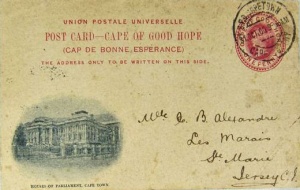 UNION POSTALE UNIVERSELLE
POST CARD—CAPE OF GOOD HOPE
(CAP DE BONNE, ESPERANCE)
THE ADDRESS ONLY TO BE WRITTEN ON THIS SIDE.
ONE PENNY
Mlle C. B. Alexandre
Les Marais
Ste Marie
Jersey C. I.
HOUSES OF PARLIAMENT, CAPE TOWN